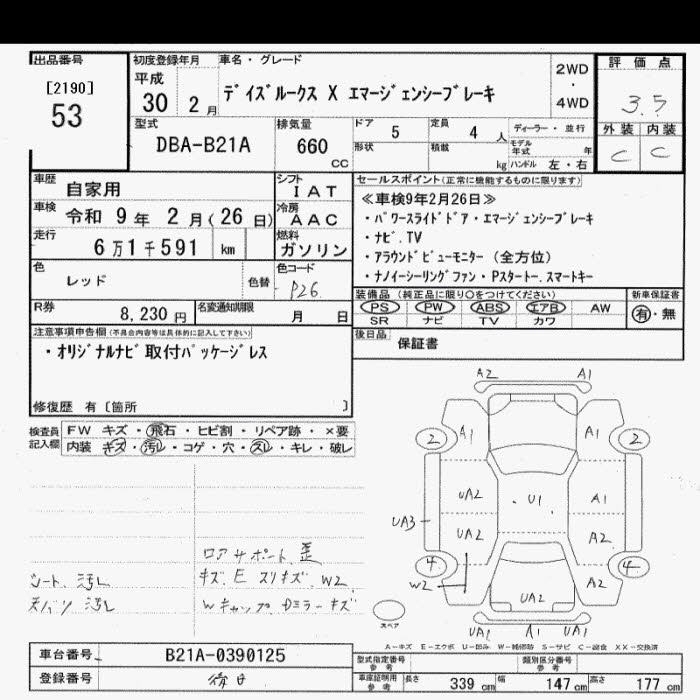 出品番号
[2190]
53
初度登録年月
平成
30 2月
車名・グレード
デイズルークス X エマージェンシーブレーキ
2WD
・
4WD
評価点
3.5
外装 内装
C C
型式
DBA-B21A
排気量
660
cc
ドア 5
定員 4 人
ディーラー・並行
形状
積載 kg
モデル年式 年
ハンドル 左・右
車歴 自家用
シフト IAT
車検 令和 9年 2月(26日)
冷房 AAC
走行 6万1千591 km
燃料 ガソリン
セールスポイント(正常に機能するものに限ります)
≪車検9年2月26日≫
・パワースライドドア・エマージェンシーブレーキ
・ナビ.TV
・アラウンドビューモニター (全方位)
・ナノイーシーリングファン・Pスタート.スマートキー
色
レッド
色替
色コード
P26
R券 8,230円
名変通知期限 月 日
装備品 (純正品に限り○をつけてください)
新車保証書
PS PW ABS エアB AW
有・無
SR ナビ TV カワ
後日品 保証書
注意事項申告欄(不具合内容等は具体的に記入して下さい)
・オリジナルナビ取付パッケージレス
修復歴 有〔箇所 〕
検査員記入欄
FW キズ・飛石・ヒビ割・リペア跡・×要
内装 キズ・汚レ・コゲ・穴・スレ・キレ・破レ
A2 A1
2 A1 A1 2
UA2 U1 A1
UA3 UA2 A2
4 W2 A2 4
UA2
UA1 A1 UA1
スペア
ロアサポート 歪
シート 汚レ
キズ E スリキズ W2
天バリ 汚レ
Wキャップ Dミラー キズ
A−キズ E−エクボ U−凹み W−補修跡 S−サビ C−腐食 XX−交換済
車台番号 B21A-0390125
登録番号
型式指定番号 参考
類別区分番号 参考
車庫証明用 参考
長さ 339 cm
幅 147 cm
高さ 177 cm